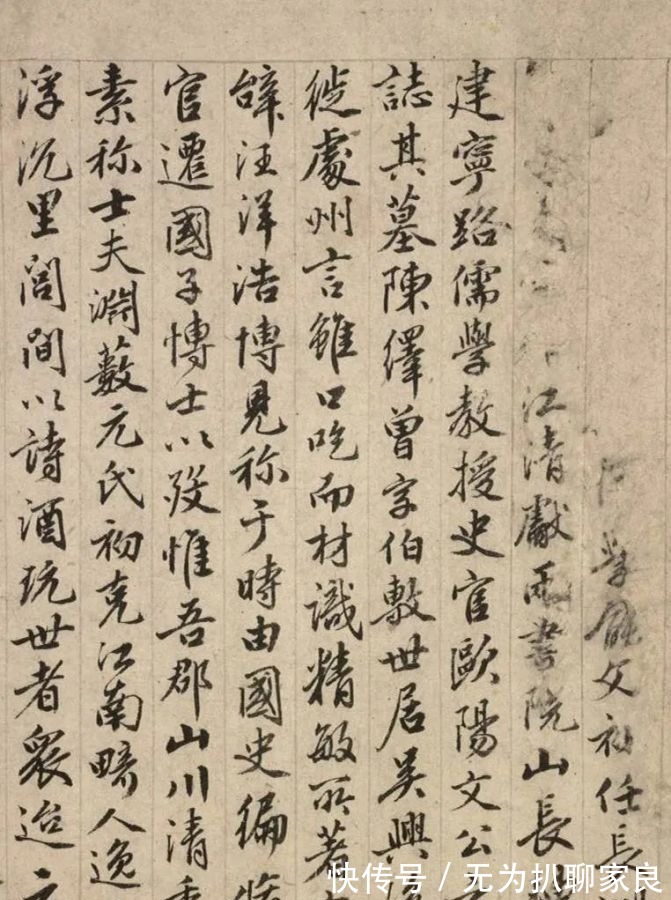 學能父初任長
江清獻兩書院山長
建寧路儒學教授史官歐陽文公
誌其墓陳繹曾字伯敷世居吳興
徙處州言雖口吃而材識精敏所著
辭汪洋浩博見称于時由國史編
官遷國子博士以歿惟吾郡山川清
素称士夫淵藪元氏初克江南畸人逸
浮沉里閭間以詩酒玩世者衆迨
快传号/无为扒聊家良